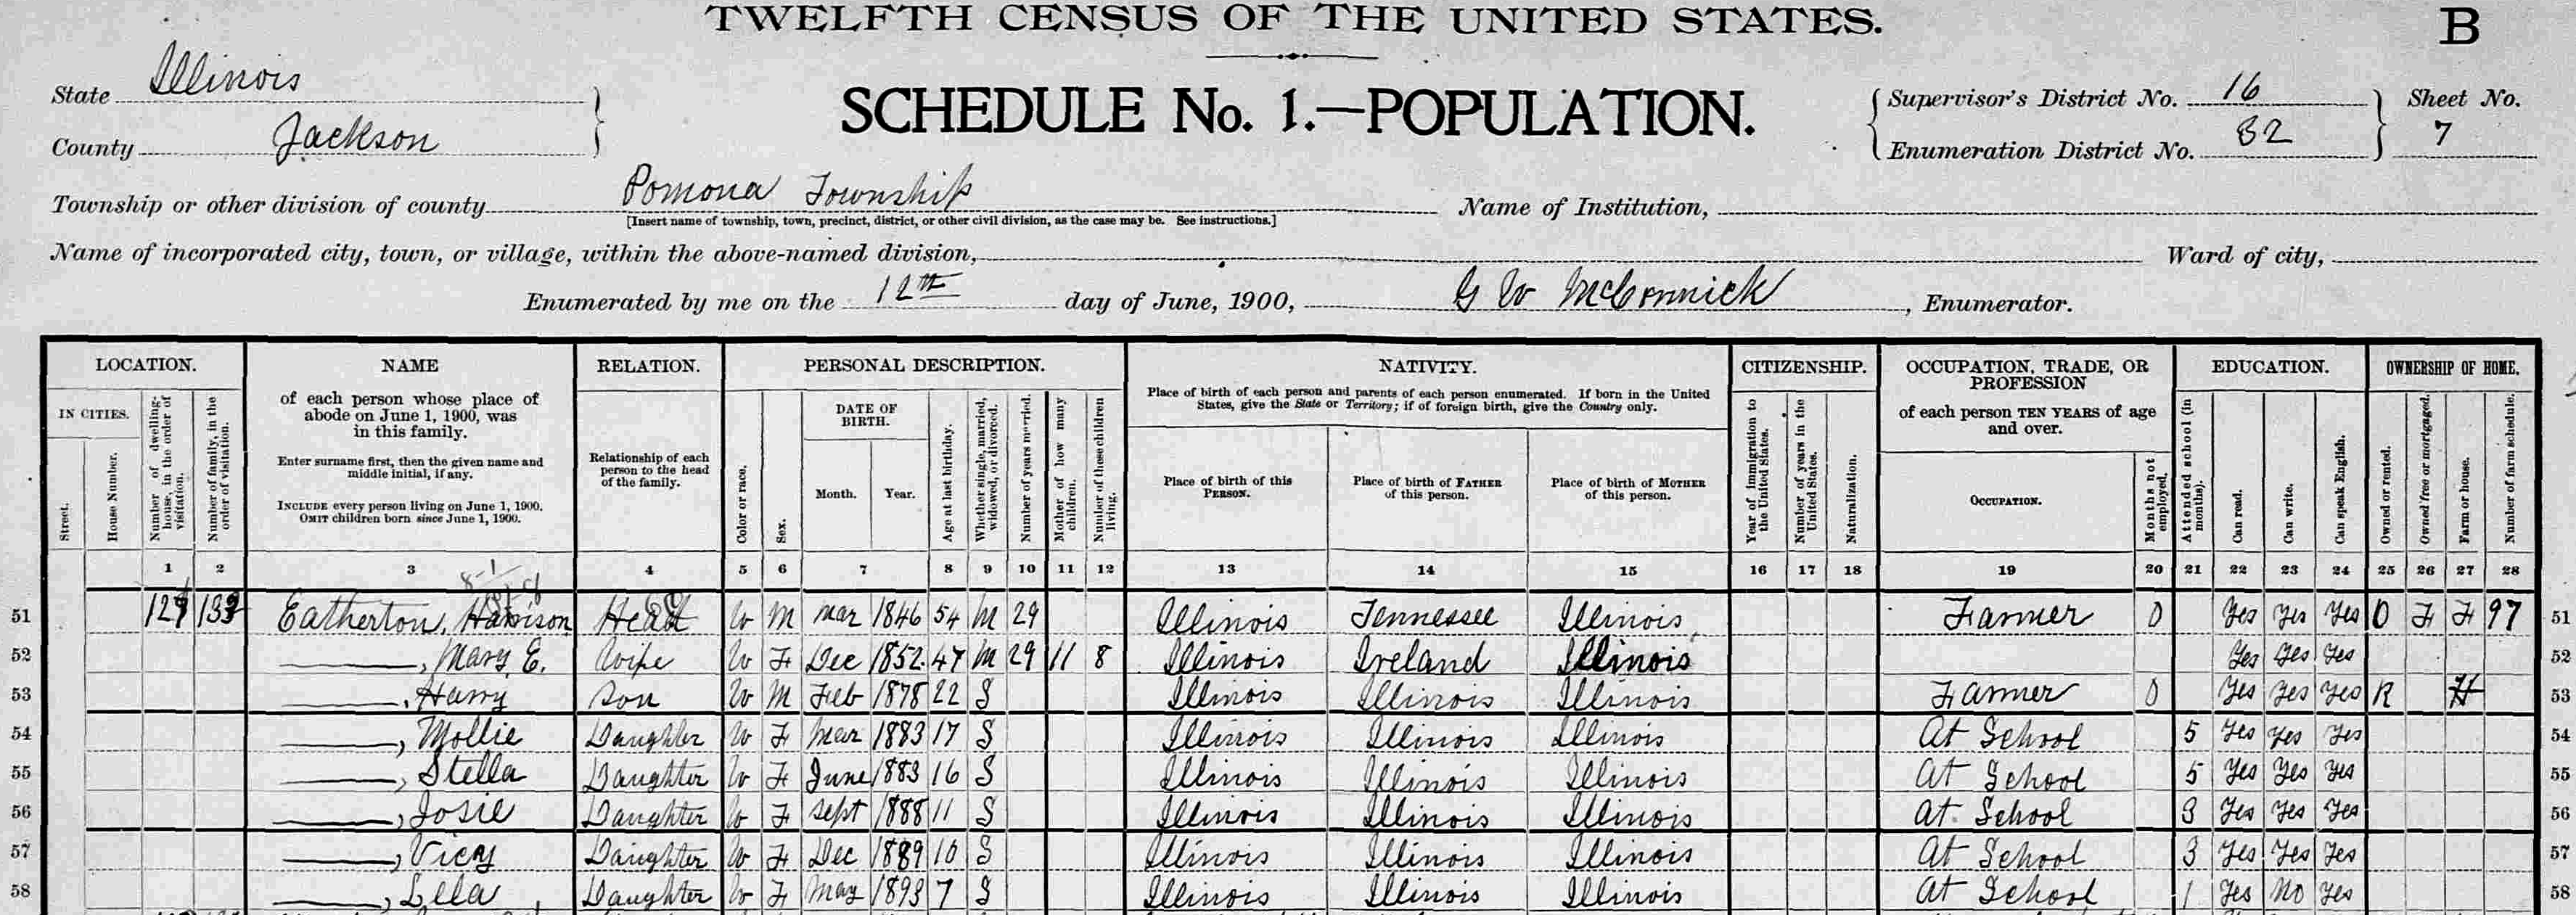 TWELFTH CENSUS OF THE UNITED STATES.
B
State Illinois
County Jackson
SCHEDULE No. 1.—POPULATION.
Supervisor's District No. 16
Enumeration District No. 82
Sheet No.
7
Township or other division of county Pomona Township
[Insert name of township, town, precinct, district, or other civil division, as the case may be. See instructions.]
Name of Institution,
Name of incorporated city, town, or village, within the above-named division,
Ward of city,
Enumerated by me on the 12th day of June, 1900, G W McCormick, Enumerator.
LOCATION. NAME RELATION. PERSONAL DESCRIPTION. NATIVITY. CITIZENSHIP. OCCUPATION, TRADE, OR PROFESSION EDUCATION. OWNERSHIP OF HOME.
IN CITIES.
Street.
House Number.
Number of dwelling-house, in the order of visitation.
Number of family, in the order of visitation.
of each person whose place of abode on June 1, 1900, was in this family.
Enter surname first, then the given name and middle initial, if any.
INCLUDE every person living on June 1, 1900.
OMIT children born since June 1, 1900.
Relationship of each person to the head of the family.
Color or race.
Sex.
DATE OF BIRTH.
Month. Year.
Age at last birthday.
Whether single, married, widowed, or divorced.
Number of years married.
Mother of how many children.
Number of these children living.
Place of birth of each person and parents of each person enumerated. If born in the United States, give the State or Territory; if of foreign birth, give the Country only.
Place of birth of this PERSON.
Place of birth of FATHER of this person.
Place of birth of MOTHER of this person.
Year of immigration to the United States.
Number of years in the United States.
Naturalization.
of each person TEN YEARS of age and over.
OCCUPATION.
Months not employed.
Attended school (in months).
Can read.
Can write.
Can speak English.
Owned or rented.
Owned free or mortgaged.
Farm or house.
Number of farm schedule.
1 2 3 4 5 6 7 8 9 10 11 12 13 14 15 16 17 18 19 20 21 22 23 24 25 26 27 28
51 Eatherton, Harrison Head W M Mar 1846 54 M 29 Illinois Tennessee Illinois Farmer 0 Yes Yes Yes O F F 97 51
52 , Mary E. Wife W F Dec 1852 47 M 29 11 8 Illinois Ireland Illinois Yes Yes Yes 52
53 , Harry Son W M Feb 1878 22 S Illinois Illinois Illinois Farmer 0 Yes Yes Yes R H 53
54 , Mollie Daughter W F Mar 1883 17 S Illinois Illinois Illinois At School 5 Yes Yes Yes 54
55 , Stella Daughter W F June 1883 16 S Illinois Illinois Illinois At School 5 Yes Yes Yes 55
56 , Josie Daughter W F Sept 1888 11 S Illinois Illinois Illinois At School 3 Yes Yes Yes 56
57 , Vicy Daughter W F Dec 1889 10 S Illinois Illinois Illinois At School 3 Yes Yes Yes 57
58 , Lella Daughter W F May 1893 7 S Illinois Illinois Illinois At School 1 Yes No Yes 58